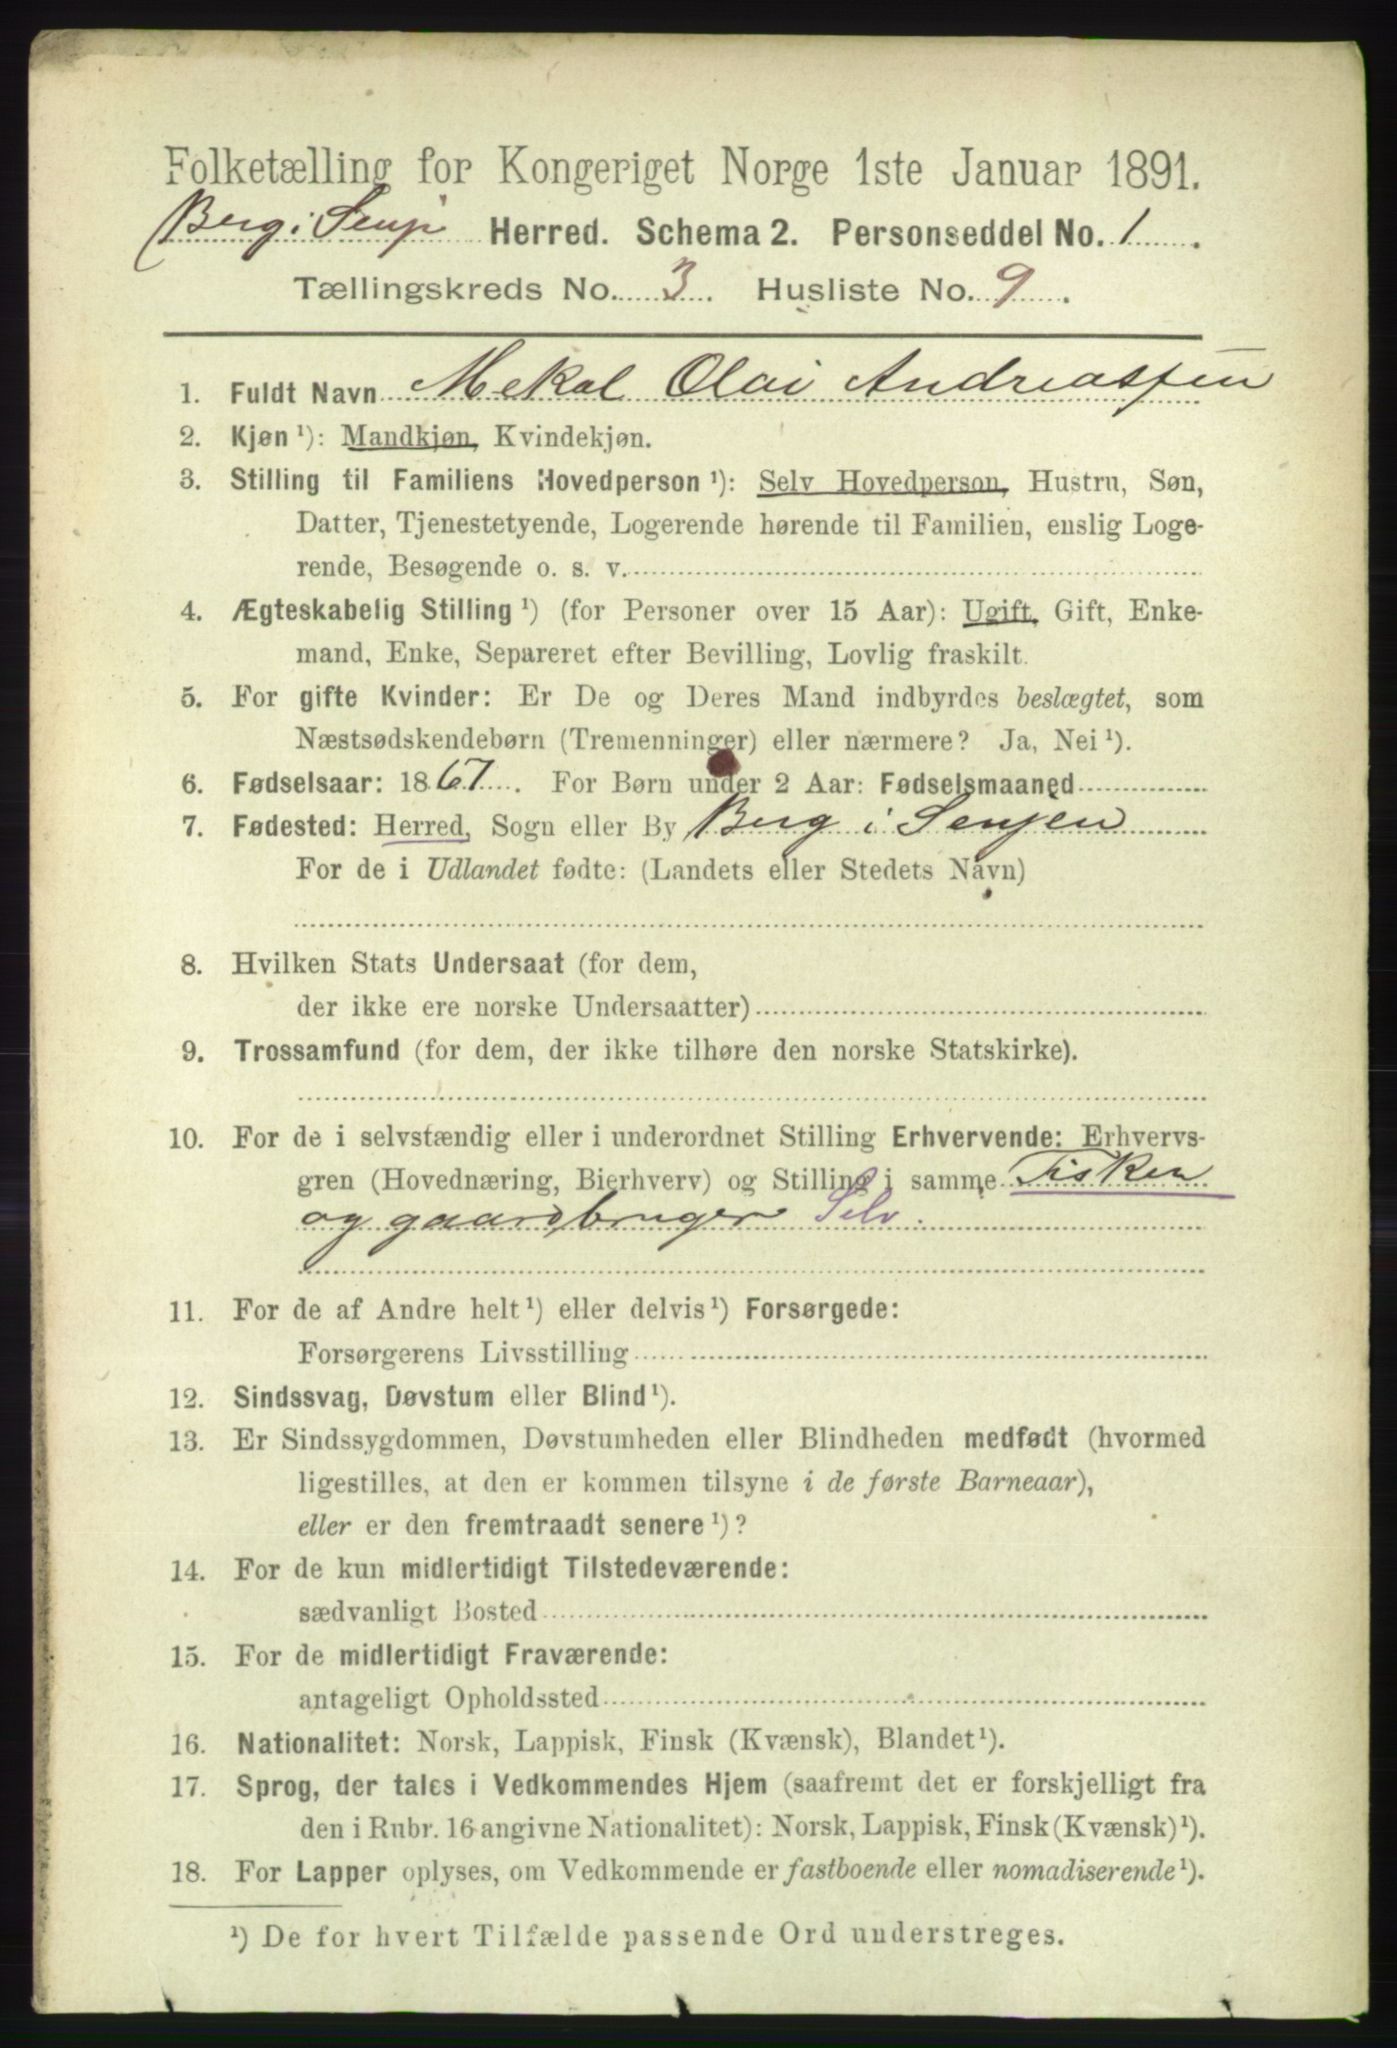 Folketælling for Kongeriget Norge 1ste Januar 1891.
Berg i Senj Herred. Schema 2. Personseddel No. 1.
Tællingskreds No. 3. Husliste No. 9.
1. Fuldt Navn Mekal Olai Andreassen
2. Kjøn ¹): Mandkjøn, Kvindekjøn.
3. Stilling til Familiens Hovedperson ¹): Selv Hovedperson, Hustru, Søn,
Datter, Tjenestetyende, Logerende hørende til Familien, enslig Loge-
rende, Besøgende o. s. v.
4. Ægteskabelig Stilling ¹) (for Personer over 15 Aar): Ugift, Gift, Enke-
mand, Enke, Separeret efter Bevilling, Lovlig fraskilt.
5. For gifte Kvinder: Er De og Deres Mand indbyrdes beslægtet, som
Næstsødskendebørn (Tremenninger) eller nærmere? Ja, Nei ¹).
6. Fødselsaar: 1867. For Børn under 2 Aar: Fødselsmaaned
7. Fødested: Herred, Sogn eller By Berg i Senjen
For de i Udlandet fødte: (Landets eller Stedets Navn)
8. Hvilken Stats Undersaat (for dem,
der ikke ere norske Undersaatter)
9. Trossamfund (for dem, der ikke tilhøre den norske Statskirke).
10. For de i selvstændig eller i underordnet Stilling Erhvervende: Erhvervs-
gren (Hovednæring, Bierhverv) og Stilling i samme Fisken
og gaardbruger Selv.
11. For de af Andre helt ¹) eller delvis ¹) Forsørgede:
Forsørgerens Livsstilling
12. Sindssvag, Døvstum eller Blind ¹).
13. Er Sindssygdommen, Døvstumheden eller Blindheden medfødt (hvormed
ligestilles, at den er kommen tilsyne i de første Barneaar),
eller er den fremtraadt senere ¹)?
14. For de kun midlertidigt Tilstedeværende:
sædvanligt Bosted
15. For de midlertidigt Fraværende:
antageligt Opholdssted
16. Nationalitet: Norsk, Lappisk, Finsk (Kvænsk), Blandet ¹).
17. Sprog, der tales i Vedkommendes Hjem (saafremt det er forskjelligt fra
den i Rubr. 16 angivne Nationalitet): Norsk, Lappisk, Finsk (Kvænsk) ¹).
18. For Lapper oplyses, om Vedkommende er fastboende eller nomadiserende ¹).
¹) De for hvert Tilfælde passende Ord understreges.